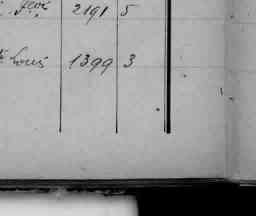 José 2191 5
St Louis 1399 3